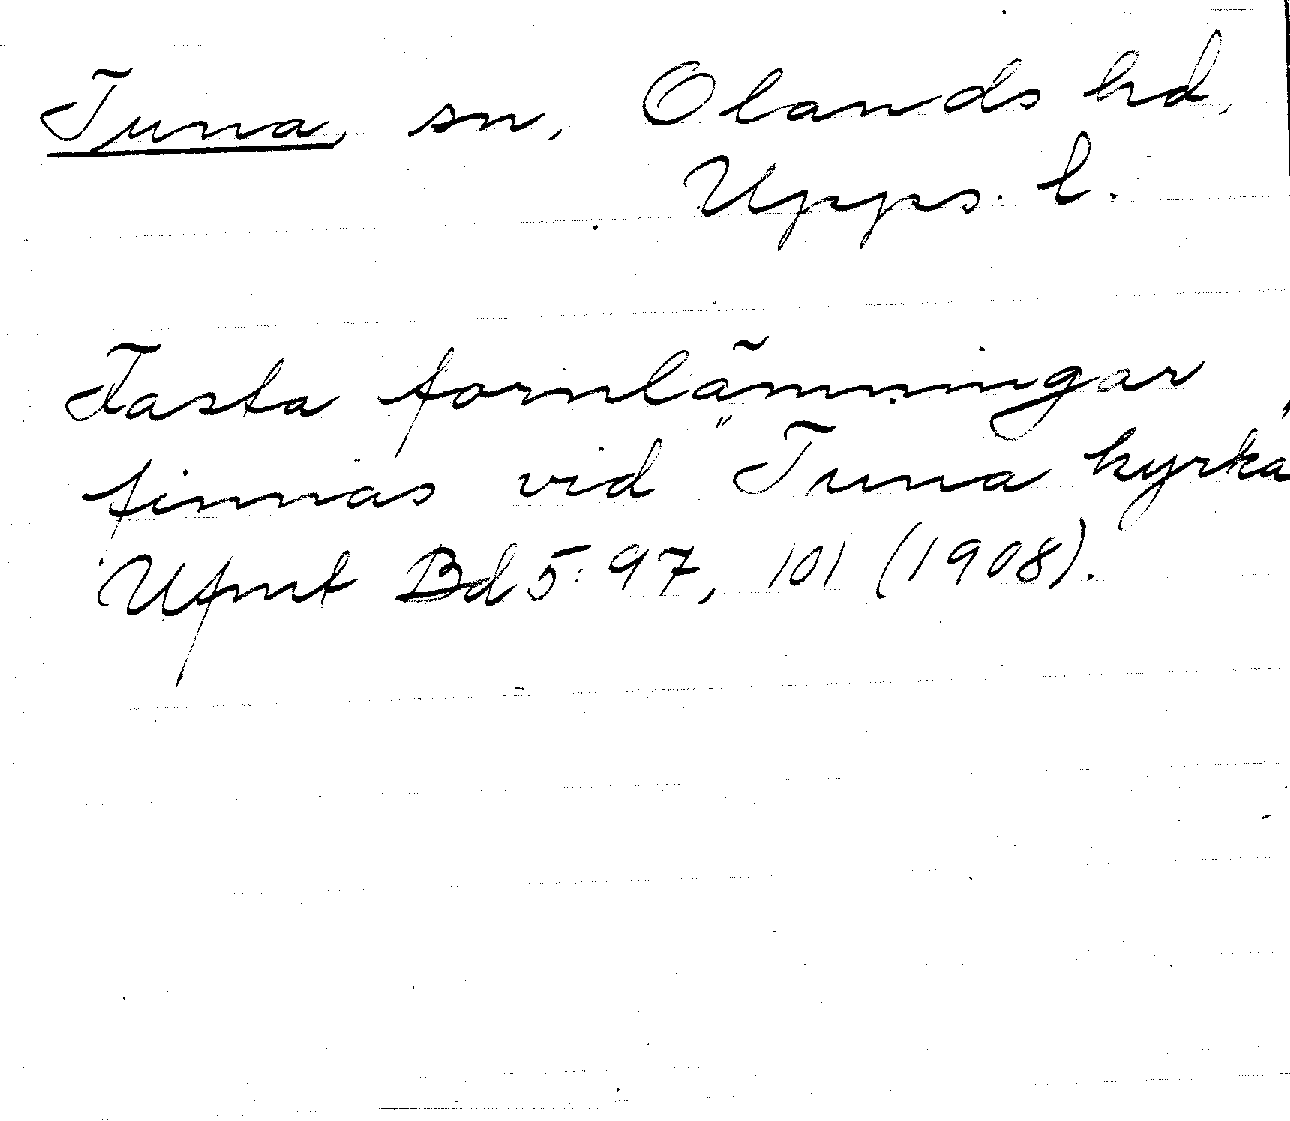 Tuna, sn, Olands hd,
Upps. l.
Fasta fornlämningar
finnas vid "Tuna kyrka"
Ufmt Bd 5: 97, 101 (1908).